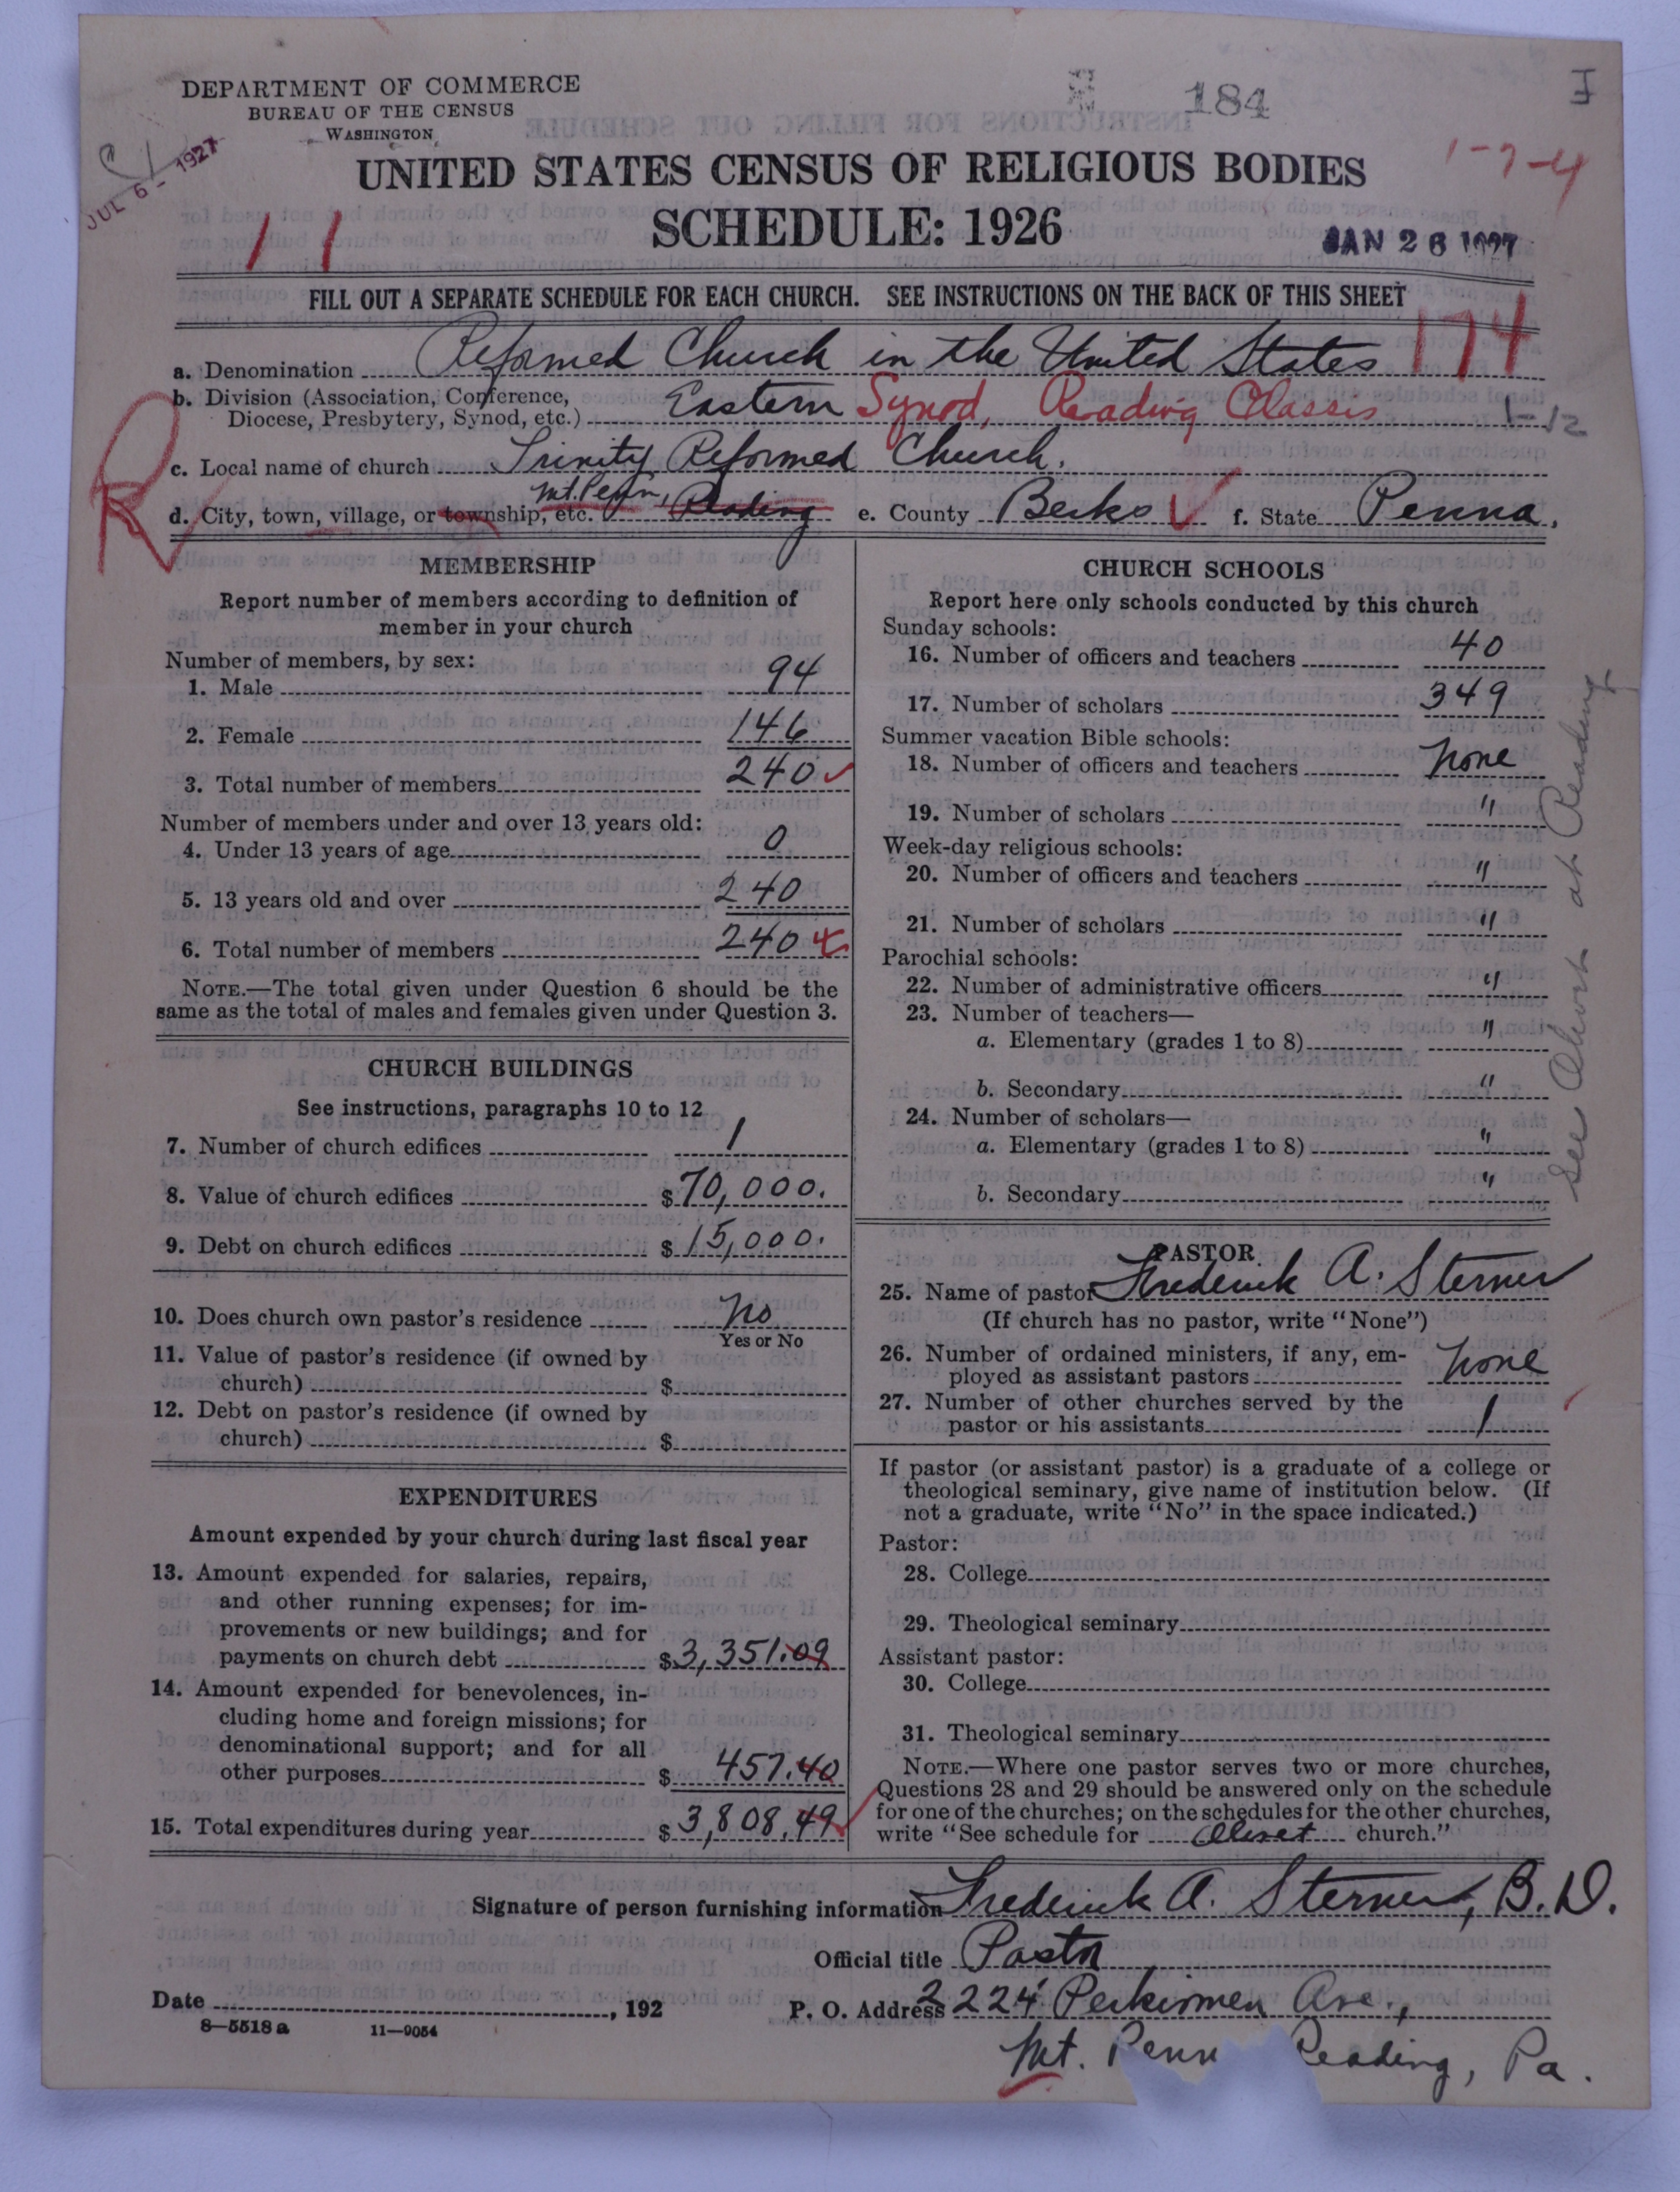 DEPARTMENT OF COMMERCE
BUREAU OF THE CENSUS
WASHINGTON
184
JUL 6 - 1927
1-7-4
UNITED STATES CENSUS OF RELIGIOUS BODIES
SCHEDULE: 1926
11
JAN 26 1927
FILL OUT A SEPARATE SCHEDULE FOR EACH CHURCH. SEE INSTRUCTIONS ON THE BACK OF THIS SHEET
174
a. Denomination Reformed Church in the United States
b. Division (Association, Conference, Diocese, Presbytery, Synod, etc.) Eastern Synod, Reading Classis 1-12
R
c. Local name of church Trinity Reformed Church.
d. City, town, village, or township, etc. Mt. Penn, Reading e. County Berks f. State Penna.
MEMBERSHIP
Report number of members according to definition of
member in your church
Number of members, by sex:
1. Male 94
2. Female 146
3. Total number of members 240
Number of members under and over 13 years old:
4. Under 13 years of age 0
5. 13 years old and over 240
6. Total number of members 240
NOTE.—The total given under Question 6 should be the
same as the total of males and females given under Question 3.
CHURCH BUILDINGS
See instructions, paragraphs 10 to 12
7. Number of church edifices 1
8. Value of church edifices $70,000.
9. Debt on church edifices $15,000.
10. Does church own pastor's residence No
Yes or No
11. Value of pastor's residence (if owned by
church) $
12. Debt on pastor's residence (if owned by
church) $
EXPENDITURES
Amount expended by your church during last fiscal year
13. Amount expended for salaries, repairs,
and other running expenses; for im-
provements or new buildings; and for
payments on church debt $3,351.09
14. Amount expended for benevolences, in-
cluding home and foreign missions; for
denominational support; and for all
other purposes $457.40
15. Total expenditures during year $3,808.49
CHURCH SCHOOLS
Report here only schools conducted by this church
Sunday schools:
16. Number of officers and teachers 40
17. Number of scholars 349
Summer vacation Bible schools:
18. Number of officers and teachers None
19. Number of scholars "
Week-day religious schools:
20. Number of officers and teachers "
21. Number of scholars "
Parochial schools:
22. Number of administrative officers "
23. Number of teachers—
a. Elementary (grades 1 to 8) "
b. Secondary "
24. Number of scholars—
a. Elementary (grades 1 to 8) "
b. Secondary "
See Olivet at Reading
PASTOR
25. Name of pastor Frederick A. Sterner
(If church has no pastor, write "None")
26. Number of ordained ministers, if any, em-
ployed as assistant pastors None
27. Number of other churches served by the
pastor or his assistants 1
If pastor (or assistant pastor) is a graduate of a college or
theological seminary, give name of institution below. (If
not a graduate, write "No" in the space indicated.)
Pastor:
28. College
29. Theological seminary
Assistant pastor:
30. College
31. Theological seminary
NOTE.—Where one pastor serves two or more churches,
Questions 28 and 29 should be answered only on the schedule
for one of the churches; on the schedules for the other churches,
write "See schedule for Olivet church."
Signature of person furnishing information Frederick A. Sterner, B.D.
Official title Pastor
Date , 192
P. O. Address 2224 Perkiomen Ave.,
8-5518a 11-9054
Mt. Penn Reading, Pa.